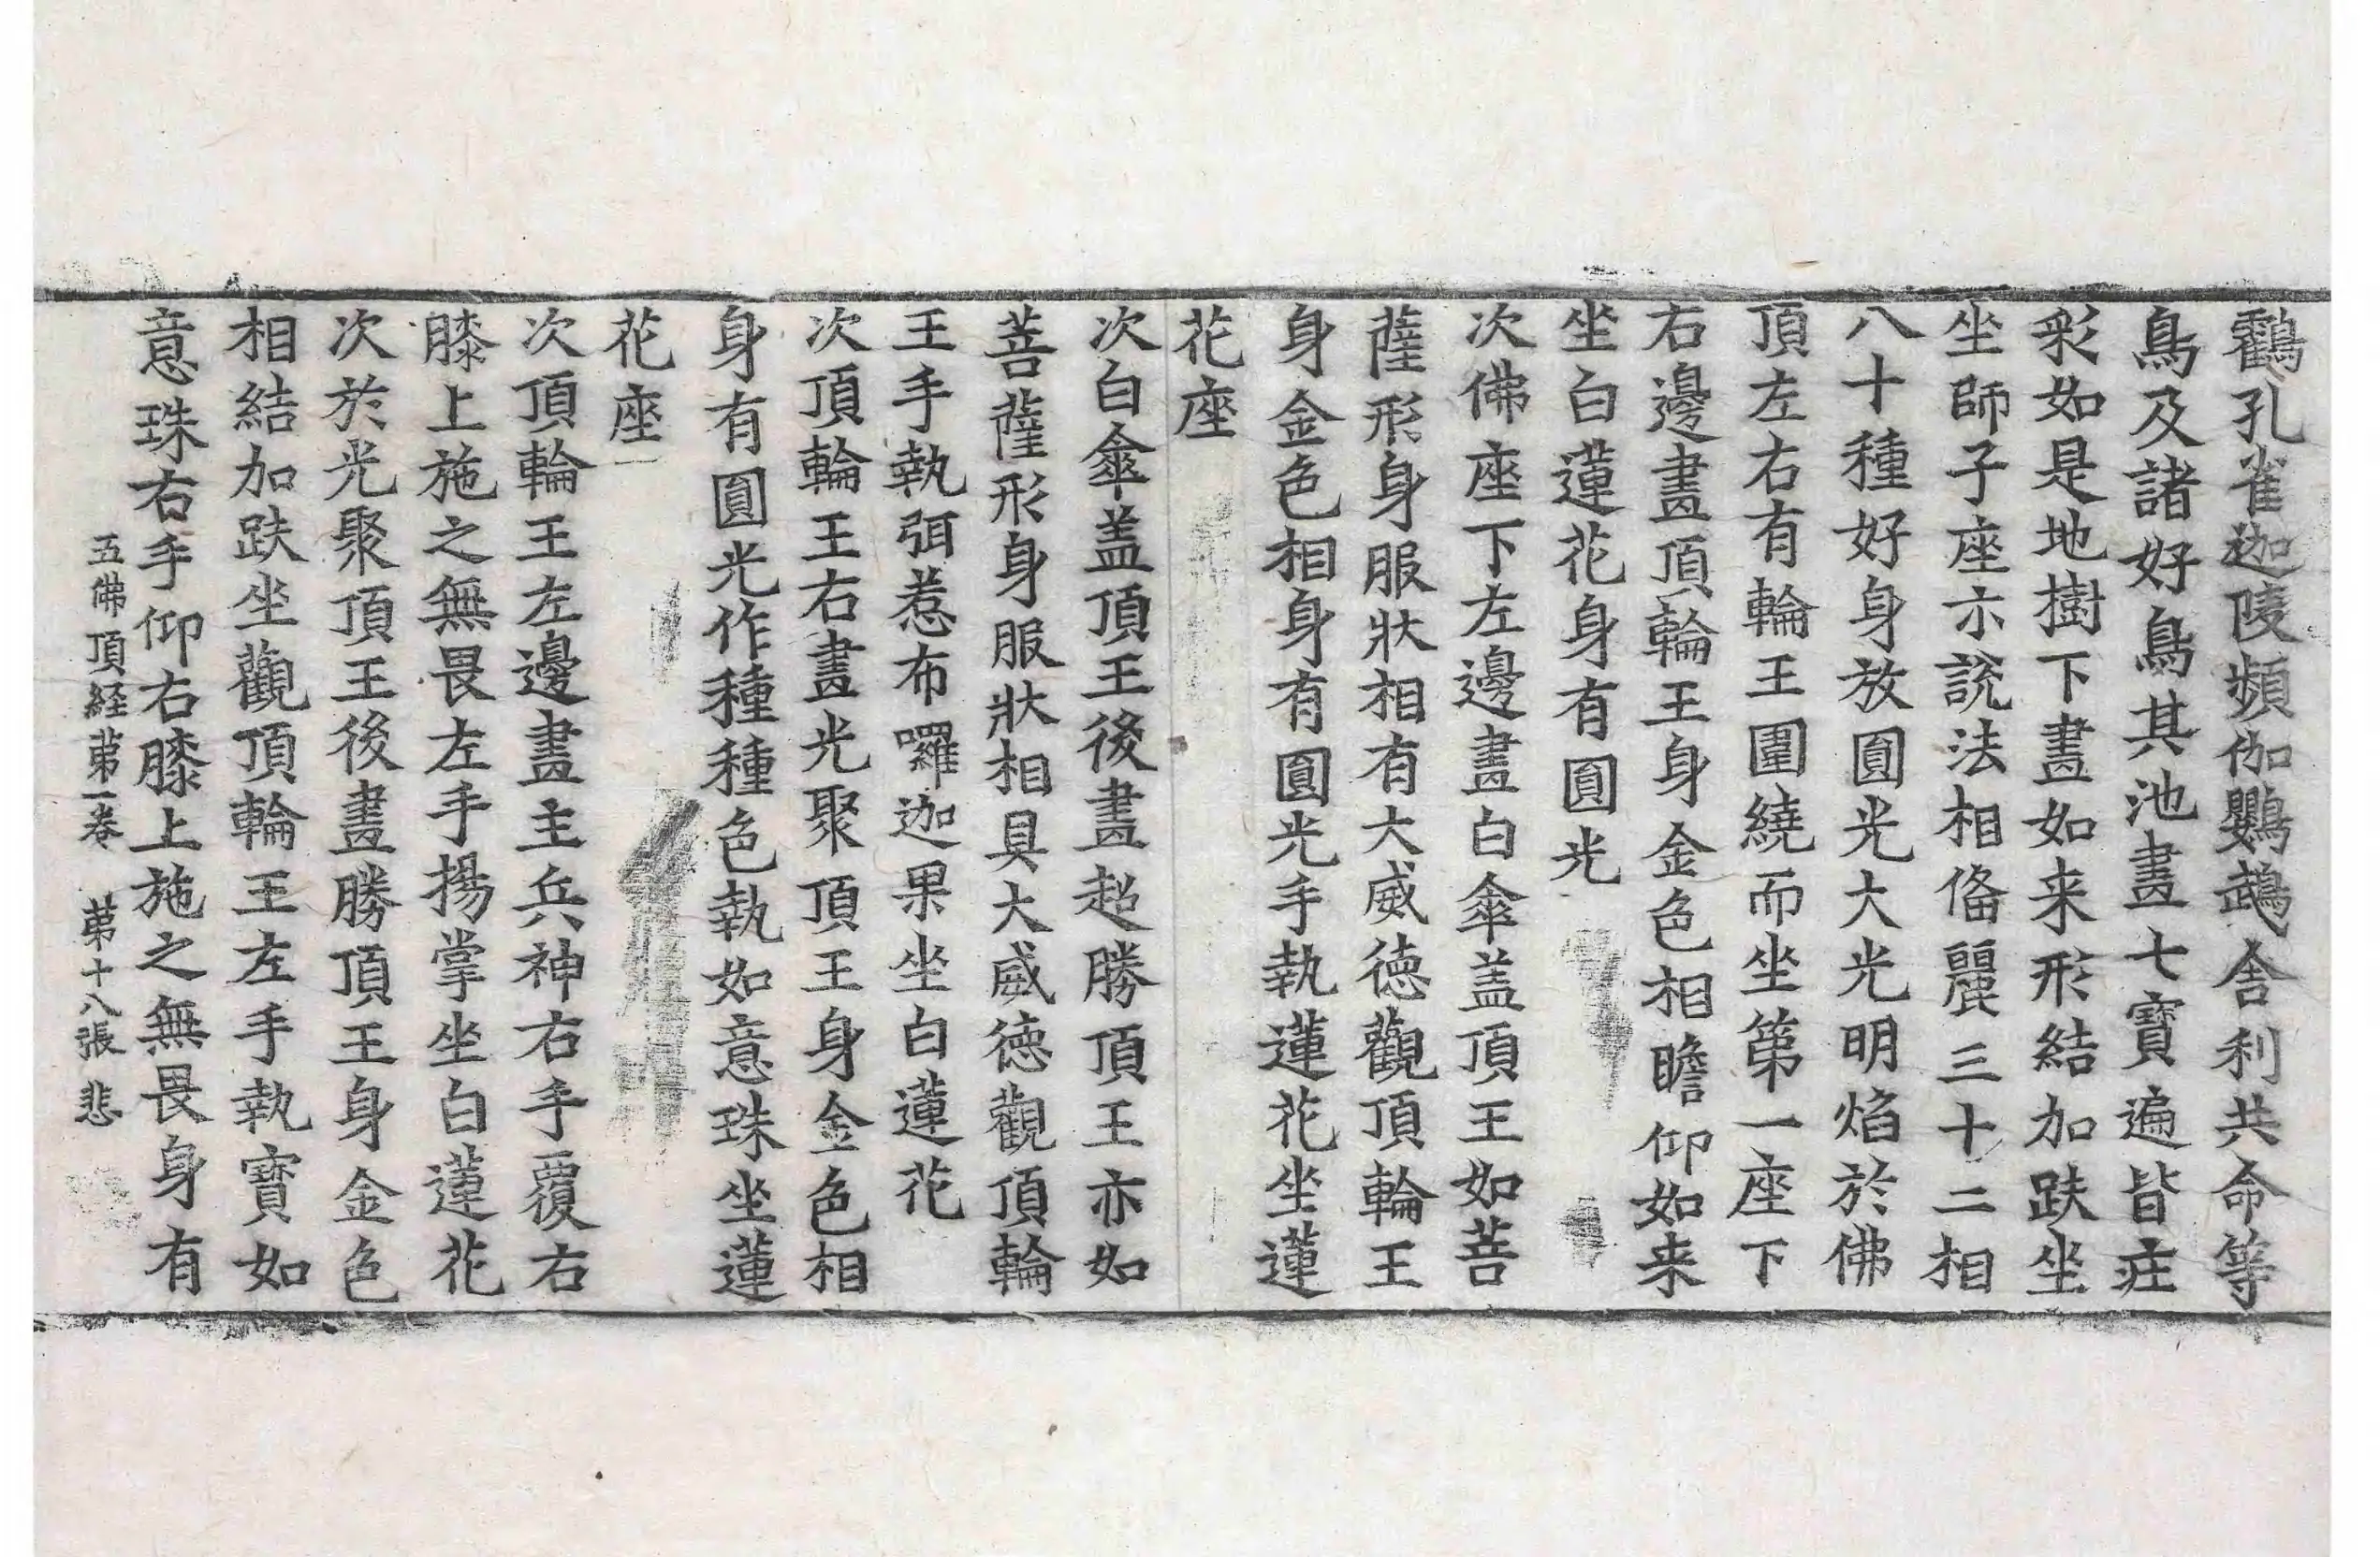 鸛孔雀迦陵頻伽鸚鵡舎利共命等
鳥及諸好鳥其池畫七寶遍皆疘
彩如是地樹下畫如来形結加趺坐
坐師子座示說法相俻麗三十二相
八十種好身放圓光大光明焰於佛
頂左右有輪王圍繞而坐第一座下
右邊畫頂輪王身金色相瞻仰如来
坐白蓮花身有圓光
次佛座下左邊畫白傘盖頂王如菩
薩形身服狀相有大威徳觀頂輪王
身金色相身有圓光手執蓮花坐蓮
花座
次白傘盖頂王後畫超勝頂王亦如
菩薩形身服狀相具大威徳觀頂輪
王手執弭惹布囉迦果坐白蓮花
次頂輪王右畫光聚頂王身金色相
身有圓光作種種色執如意珠坐蓮
花座
次頂輪王左邊畫主兵神右手覆右
膝上施之無畏左手揚掌坐白蓮花
次於光聚頂王後畫勝頂王身金色
相結加趺坐觀頂輪王左手執寶如
意珠右手仰右膝上施之無畏身有
五佛頂経苐一卷　苐十八張　悲